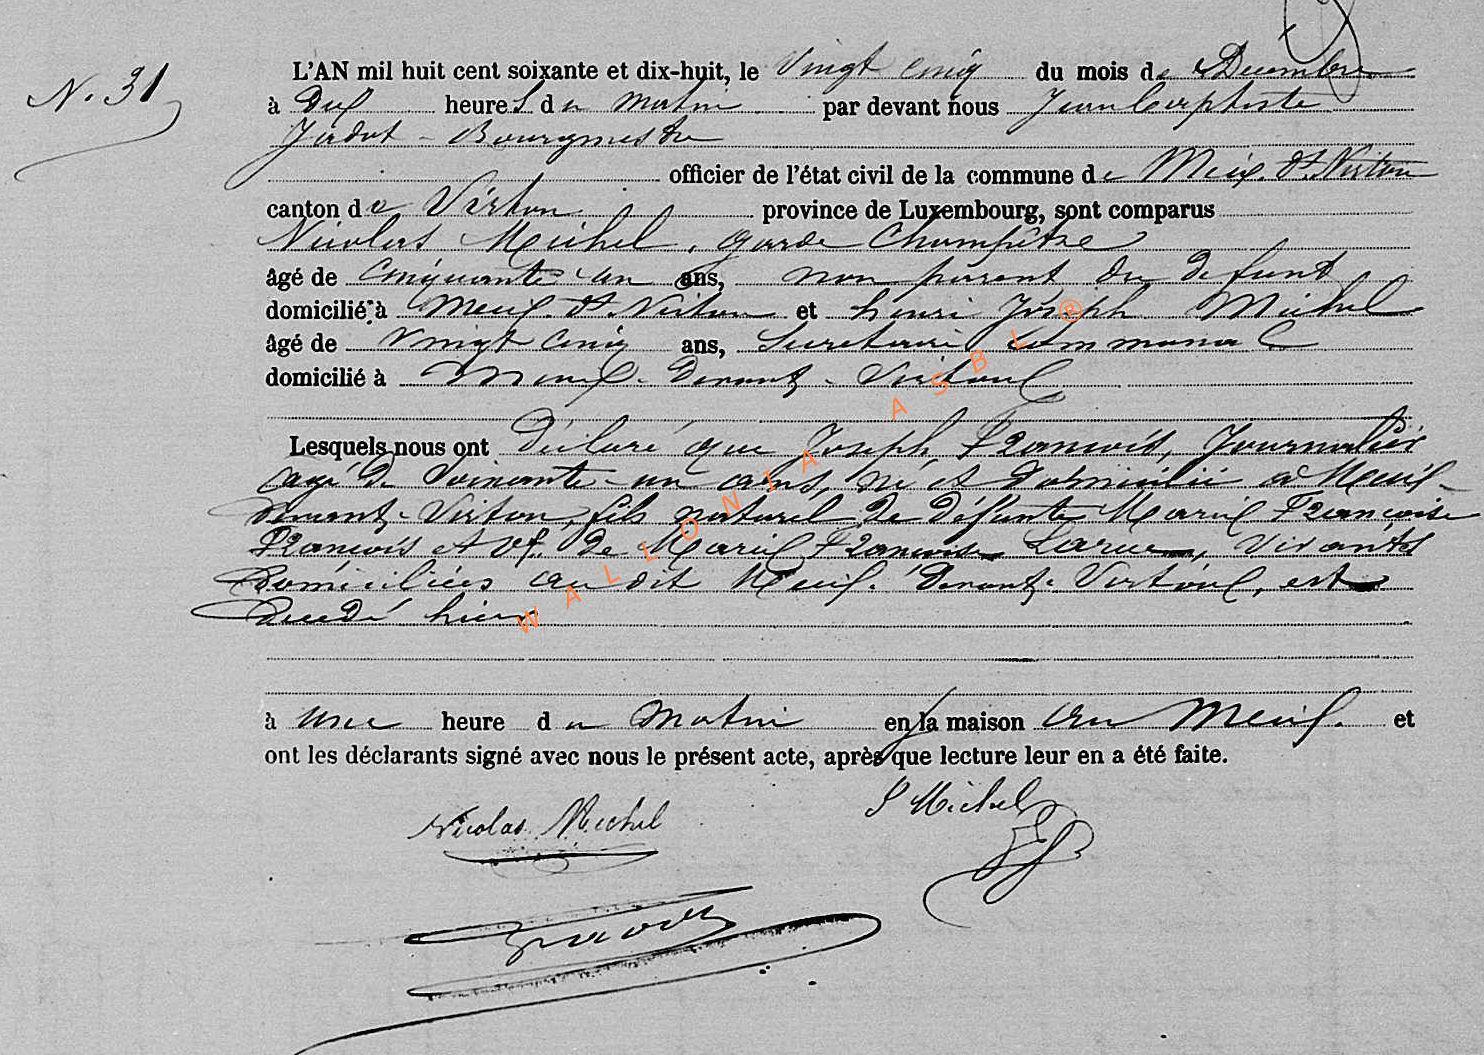 N. 31
L'AN mil huit cent soixante et dix-huit, le Vingt cinq du mois de Decembre
à Dix heures du matin par devant nous Jean Baptiste
Jadot - Bourgmestre
officier de l'état civil de la commune de Meix-dt-Virton
canton de Virton province de Luxembourg, sont comparus
Nicolas Michel, garde Champêtre
âgé de cinquante-un ans, non parent du defunt
domicilié à Meix-dt-Virton et henri Joseph Michel
âgé de Vingt cinq ans, Secretaire communal
domicilié à Meix-devant-Virton
Lesquels nous ont Déclaré que Joseph François, Journalier
agé de Soixante-un ans, né et domicilié à Meix-
devant-Virton, fils naturel de défunte Marie Françoise
François et Vf. de Marie Françoise Larue, vivantes
Domiciliées au dit Meix-devant-Virton, est
Decedé hier
à une heure du Matin en la maison au Meix. et
ont les déclarants signé avec nous le présent acte, après que lecture leur en a été faite.
Nicolas Michel
Michel
Jadot
WALLONIA ASBL ®